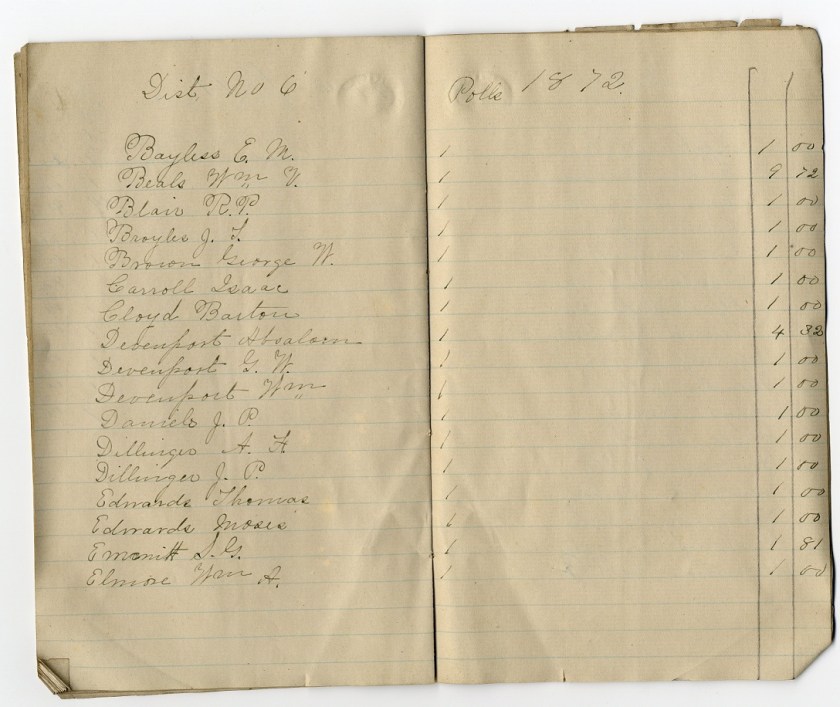 Dist No 6 Polls 1872.
Bayless E. M. 1 1 00
Beals Wm V. 1 9 72
Blair R. P. 1 1 00
Broyles J. F. 1 1 00
Brown George W. 1 1 00
Carroll Isaac 1 1 00
Cloyd Barton 1 1 00
Devenport Absalom 1 4 32
Devenport G. W. 1 1 00
Devenport Wm 1 1 00
Daniels J. P. 1 1 00
Dillinger A. H 1 1 00
Dillinger J. P. 1 1 00
Edwards Thomas 1 1 00
Edwards Moses 1 1 00
Emmitt S. G. 1 1 81
Elmore Wm A. 1 1 00